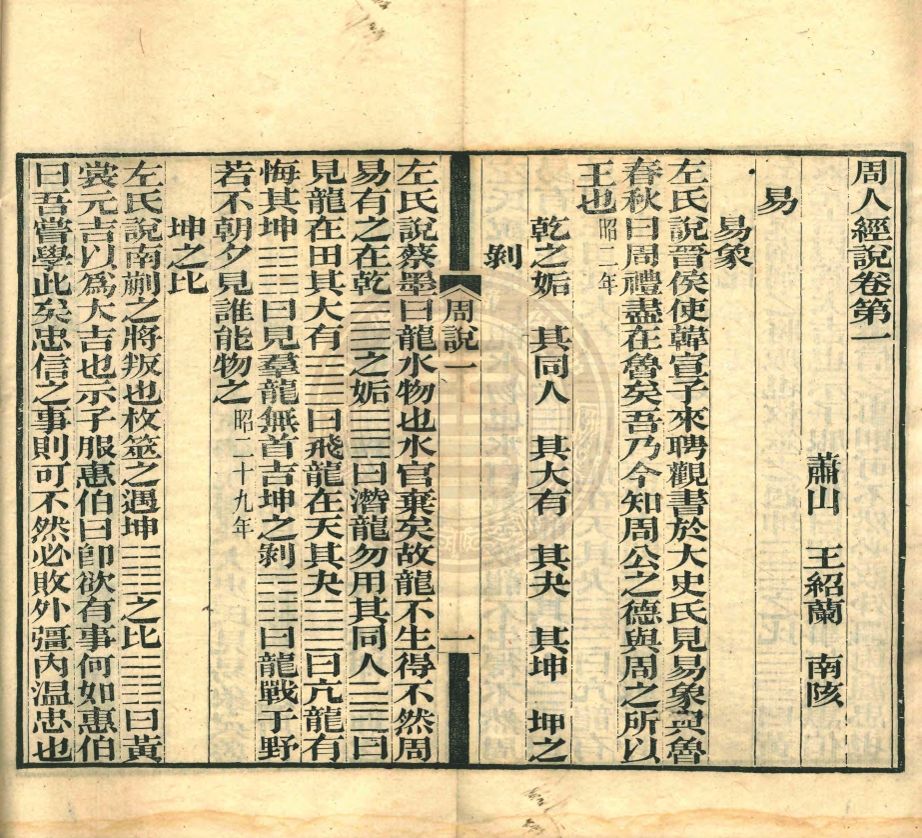 周人經說卷第一
蕭山 王紹蘭 南陔
易
易象
左氏說晉侯使韓宣子來聘觀書於大史氏見易象與魯
春秋曰周禮盡在魯矣吾乃今知周公之德與周之所以
王也昭二年
乾之姤 其同人 其大有 其夬 其坤 坤之
剝
周說一
一
左氏說蔡墨曰龍水物也水官棄矣故龍不生得不然周
易有之在乾䷀之姤䷫曰潛龍勿用其同人䷌曰
見龍在田其大有䷍曰飛龍在天其夬䷪曰亢龍有
悔其坤䷁曰見羣龍無首吉坤之剝䷖曰龍戰于野
若不朝夕見誰能物之昭二十九年
坤之比
左氏說南蒯之將叛也枚筮之遇坤䷁之比䷇曰黃
裳元吉以爲大吉也示子服惠伯曰卽欲有事何如惠伯
曰吾嘗學此矣忠信之事則可不然必敗外彊內温忠也